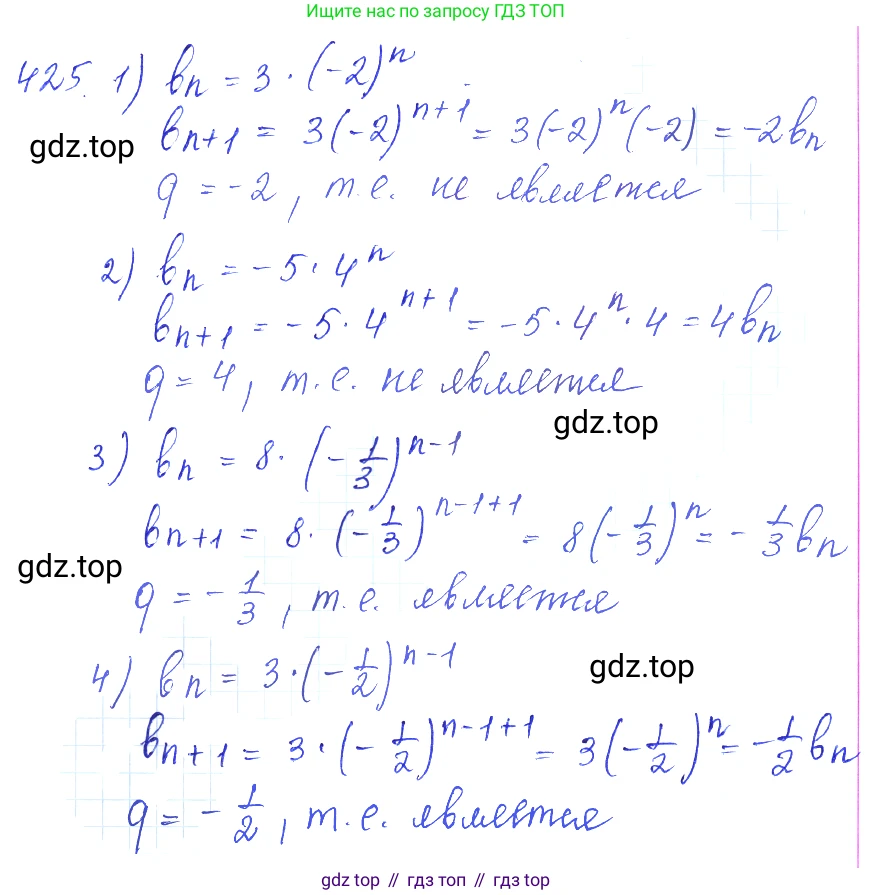 Ищите нас по запросу ГДЗ ТОП
425. 1) bn = 3 · (-2)^n
bn+1 = 3(-2)^(n+1) = 3(-2)^n (-2) = -2bn
gdz.top
q = -2, т.е. не является
2) bn = -5 · 4^n
bn+1 = -5 · 4^(n+1) = -5 · 4^n · 4 = 4bn
q = 4, т.е. не является
gdz.top
3) bn = 8 · (-1/3)^(n-1)
bn+1 = 8 · (-1/3)^(n-1+1) = 8(-1/3)^n = -1/3 bn
gdz.top
q = -1/3, т.е. является
4) bn = 3 · (-1/2)^(n-1)
gdz.top
bn+1 = 3 · (-1/2)^(n-1+1) = 3(-1/2)^n = -1/2 bn
q = -1/2, т.е. является
gdz top // гдз топ // gdz top